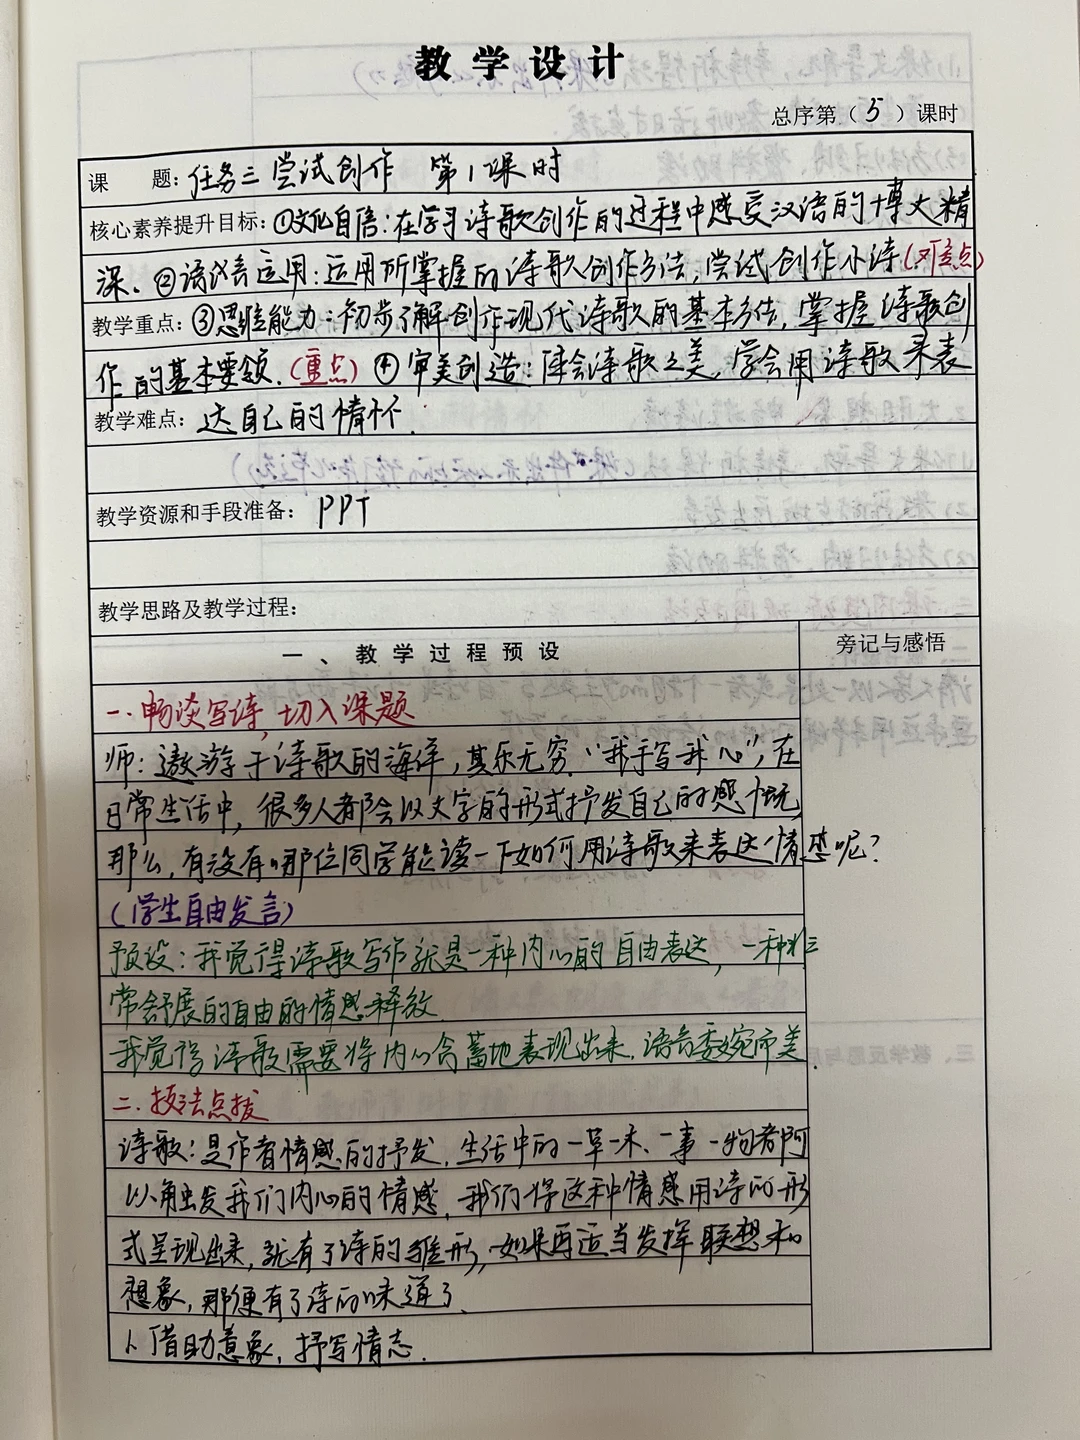 教学设计
总序第（5）课时
课 题：任务三 尝试创作 第1课时
核心素养提升目标：①文化自信：在学习诗歌创作的过程中感受汉语的博大精
深。②语言运用：运用所掌握的诗歌创作方法，尝试创作小诗（难点）
教学重点：③思维能力：初步了解创作现代诗歌的基本方法，掌握诗歌创
作的基本要领.（重点）④审美创造：体会诗歌之美，学会用诗歌来表
教学难点：达自己的情怀.
教学资源和手段准备：PPT
教学思路及教学过程：
一、教学过程预设
旁记与感悟
一.畅谈写诗，切入课题
师：遨游于诗歌的海洋，其乐无穷.“我手写我心”，在
日常生活中，很多人都会以文字的形式抒发自己的感慨，
那么，有没有哪位同学能谈一下如何用诗歌来表达情感呢？
（学生自由发言）
预设：我觉得诗歌写作就是一种内心的自由表达，一种非
常舒展的自由的情感释放
我觉得诗歌需要将内心含蓄地表现出来，语言委婉而美.
二.技法点拨
诗歌：是作者情感的抒发，生活中的一草一木、一事一物都可
以触发我们内心的情感，我们将这种情感用诗的形
式呈现出来，就有了诗的雏形，如果再适当发挥联想和
想象，那便有了诗的味道了.
1.借助意象，抒写情志.